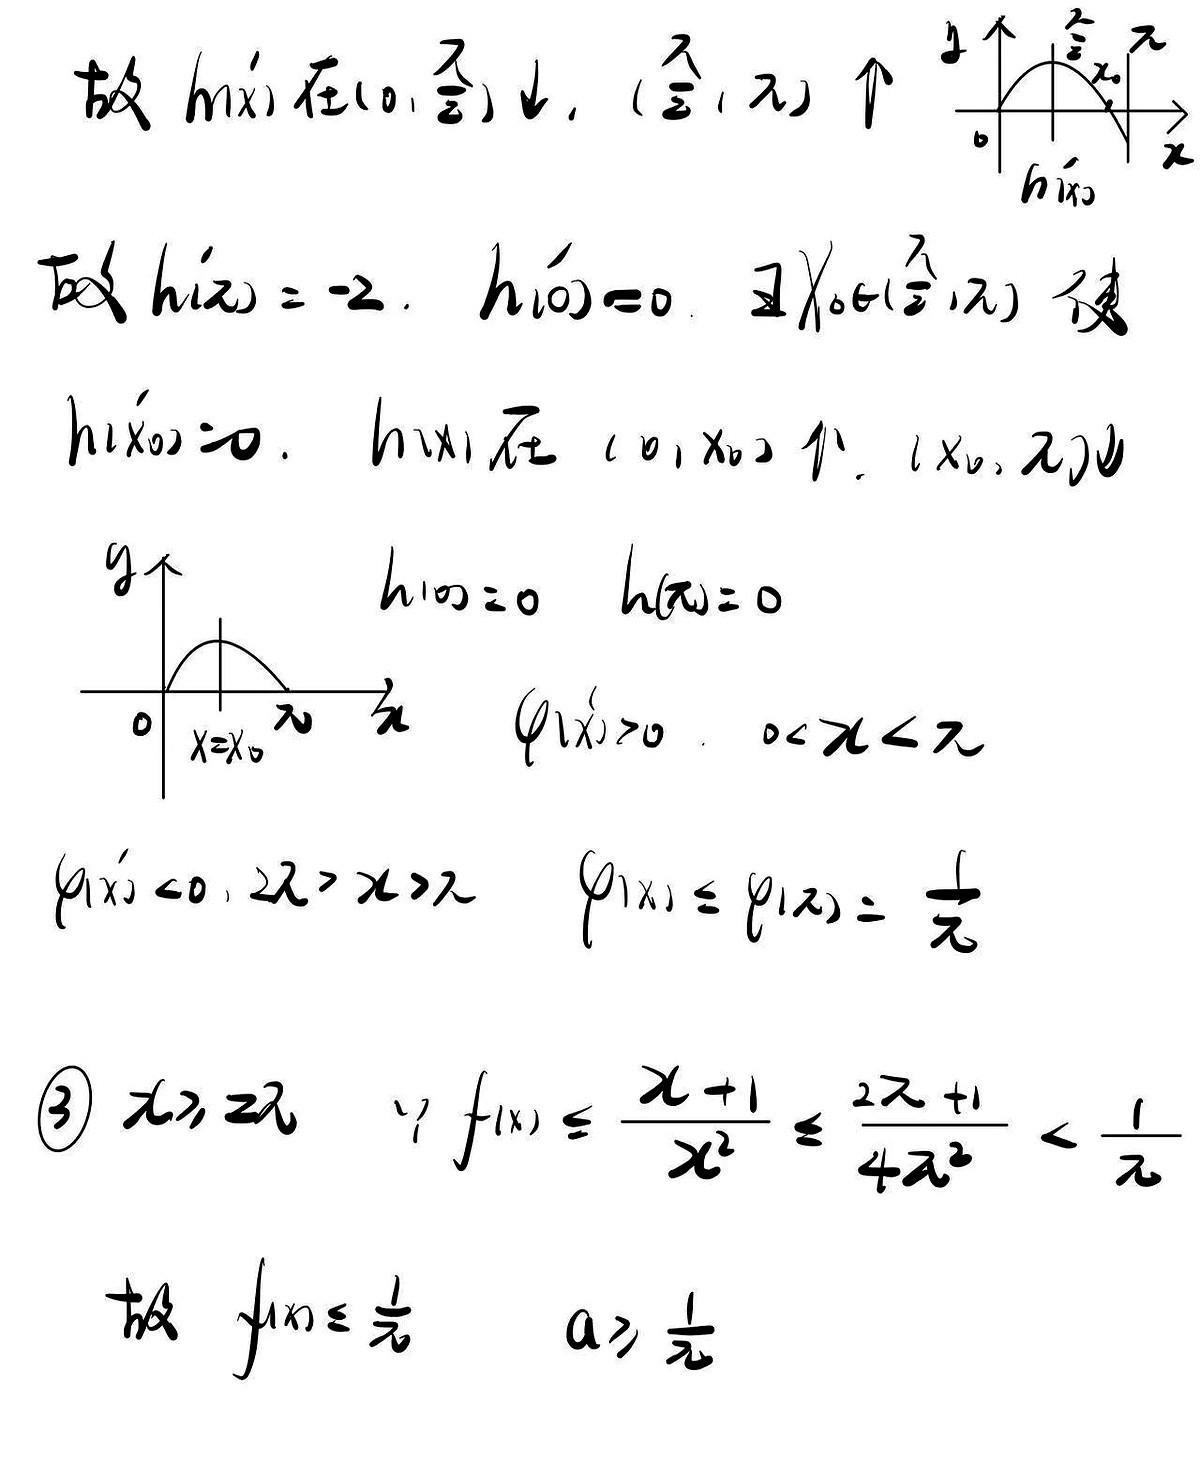 故 h'(x) 在(0,π/2)↓, (π/2,π)↑
y π/2 π x₀ 0 x h'(x)
故 h'(π)=-2. h'(0)=0. ∃x₀∈(π/2,π) 使
h'(x₀)=0. h(x)在 (0,x₀)↑. (x₀,π)↓
y h(0)=0 h(π)=0
0 x=x₀ π x φ'(x)>0. 0<x<π
φ'(x)<0, 2π>x>π φ(x)≤φ(π)=1/π
③ x≥2π ∵ f(x)≤(x+1)/x²≤(2π+1)/4π²<1/π
故 f(x)≤1/π a≥1/π